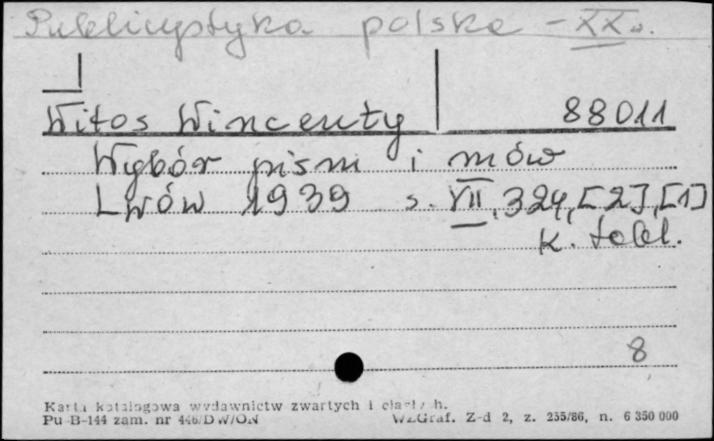 Publicystyka polska - XX w.
Witos Wincenty 88011
Wybór pism i mów
Lwów 1939 s. VII, 324, [2], [1]
k. tabl.
8
Karta katalogowa wydawnictw zwartych i ciągłych.
Pu-B-144 zam. nr 446/DW/ON WZGraf. Z-d 2, z. 235/86, n. 6 350 000